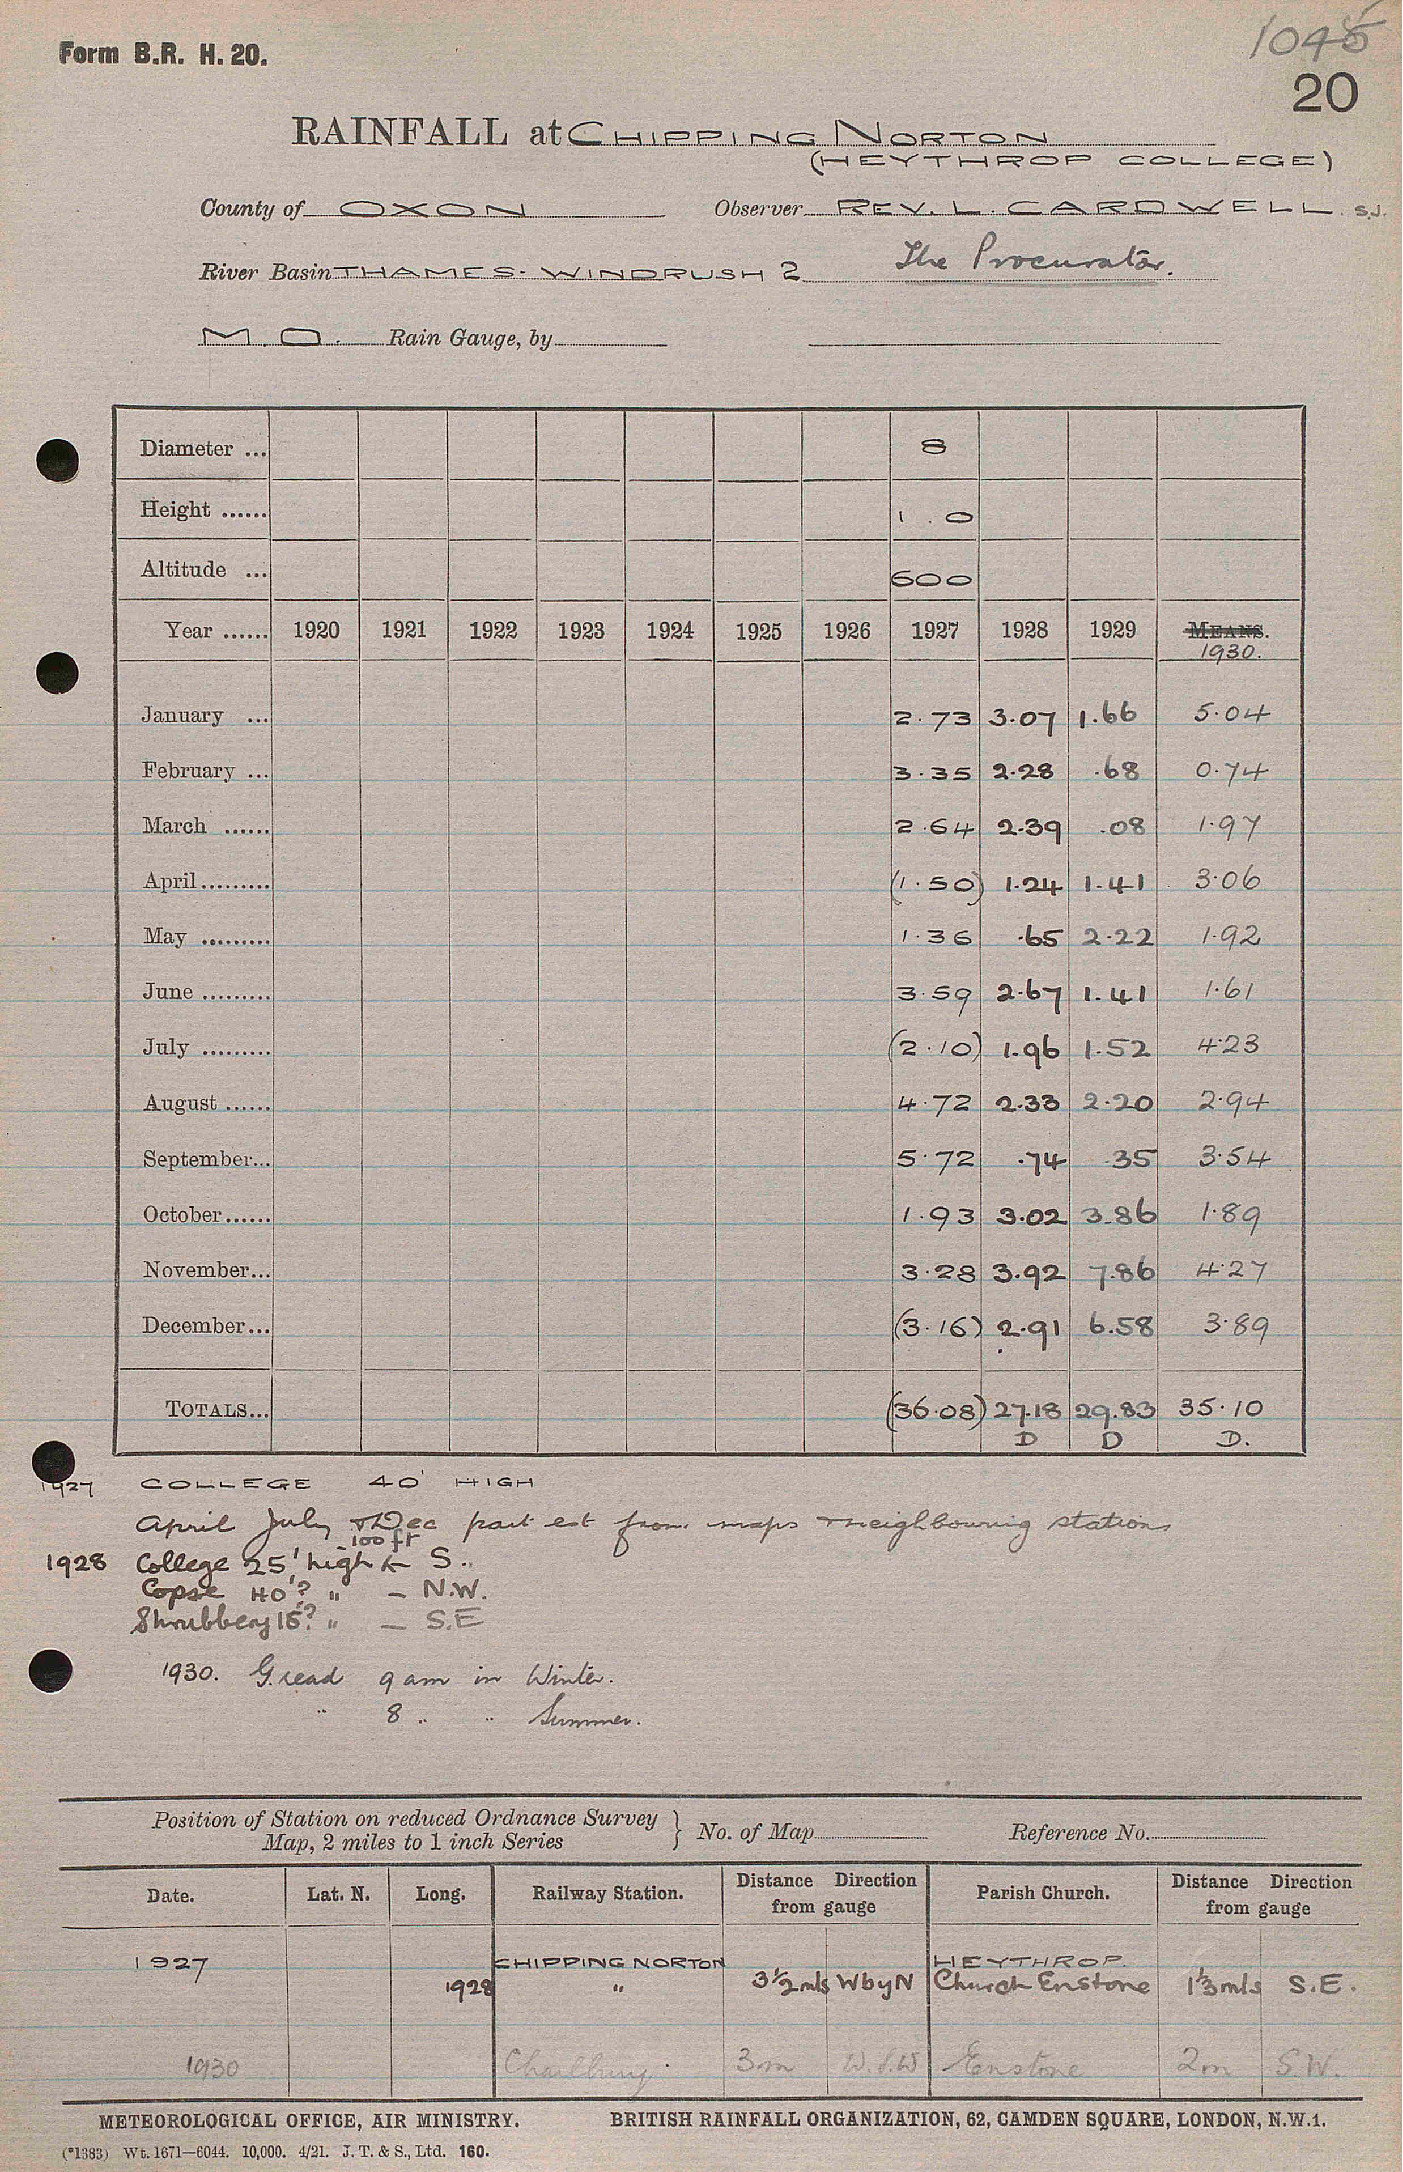 Form B.R. H. 20.
1045
20
RAINFALL at CHIPPING NORTON
(HEYTHROP COLLEGE)
County of OXON Observer REV. L. CARDWELL S.J.
River Basin THAMES-WINDRUSH 2 The Procurator.
M.O. Rain Gauge, by
Diameter ... 8
Height ...... 1.0
Altitude ... 600
Year ...... 1920 1921 1922 1923 1924 1925 1926 1927 1928 1929 MEANS.
1930.
January ... 2.73 3.07 1.66 5.04
February ... 3.35 2.28 .68 0.74
March ...... 2.64 2.39 .08 1.97
April......... (1.50) 1.24 1.41 3.06
May ......... 1.36 .65 2.22 1.92
June ......... 3.59 2.67 1.41 1.61
July ......... (2.10) 1.96 1.52 4.23
August ...... 4.72 2.33 2.20 2.94
September... 5.72 .74 .35 3.54
October...... 1.93 3.02 3.86 1.89
November... 3.28 3.92 7.86 4.27
December... (3.16) 2.91 6.58 3.89
TOTALS... (36.08) 27.18 29.83 35.10
D D D.
1927 COLLEGE 40' HIGH
April July & Dec part est from maps & neighbouring stations
100 ft
1928 College 25' high S.
Copse 40'? " - N.W.
Shrubbery 15'? " - S.E
1930. G. read 9 am in Winter.
" 8 " " Summer.
Position of Station on reduced Ordnance Survey
Map, 2 miles to 1 inch Series } No. of Map Reference No.
Date. Lat. N. Long. Railway Station. Distance Direction from gauge Parish Church. Distance Direction from gauge
1927 CHIPPING NORTON HEYTHROP.
1928 " 3½ mls W by N Church Enstone 1⅓ mls S.E.
1930 Charlbury 3m W.S.W Enstone 2m S.W.
METEOROLOGICAL OFFICE, AIR MINISTRY. BRITISH RAINFALL ORGANIZATION, 62, CAMDEN SQUARE, LONDON, N.W.1.
(*1383) Wt. 1671—6044. 10,000. 4/21. J. T. & S., Ltd. 160.